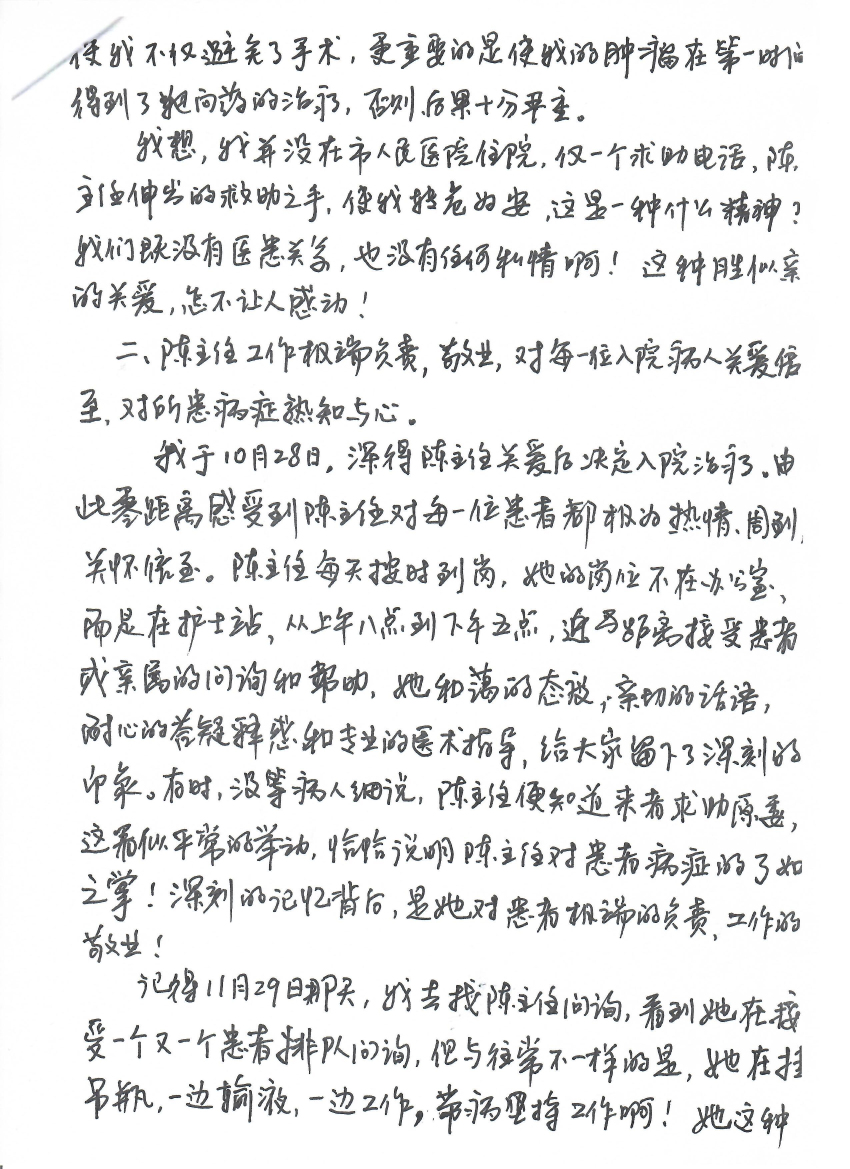 使我不仅避免了手术，更重要的是使我的肿瘤在第一时间
得到了靶向药的治疗，否则后果十分严重。
我想，我并没在市人民医院住院，仅一个求助电话，陈
主任伸出的救助之手，使我转危为安，这是一种什么精神？
我们既没有医患关系，也没有任何私情啊！这种胜似亲
的关爱，怎不让人感动！
二、陈主任工作极端负责，敬业，对每一位入院病人关爱倍
至，对所患病症熟知与心。
我于10月28日，深得陈主任关爱后决定入院治疗。由
此零距离感受到陈主任对每一位患者都极为热情、周到，
关怀倍至。陈主任每天按时到岗，她的岗位不在办公室，
而是在护士站，从上午八点到下午五点，近距离接受患者
或亲属的问询和帮助，她和蔼的态度，亲切的话语，
耐心的答疑释惑和专业的医术指导，给大家留下了深刻的
印象。有时，没等病人细说，陈主任便知道来者求助原委，
这看似平常的举动，恰恰说明陈主任对患者病症的了如
之掌！深刻的记忆背后，是她对患者极端的负责，工作的
敬业！
记得11月29日那天，我去找陈主任问询，看到她在接
受一个又一个患者排队问询，但与往常不一样的是，她在挂
吊瓶，一边输液，一边工作，带病坚持工作啊！她这种